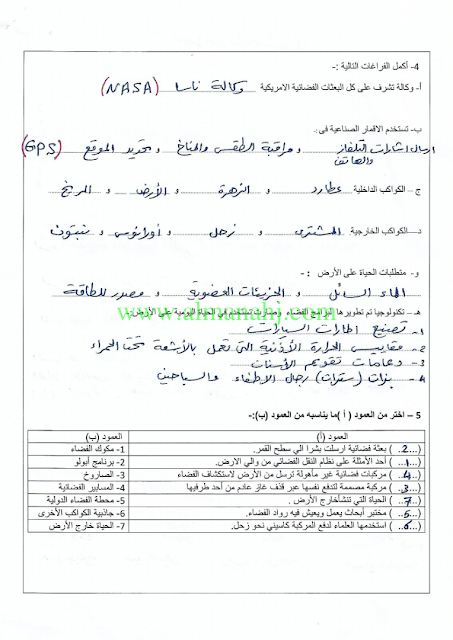 4- أكمل الفراغات التالية :-
أ- وكالة تشرف على كل البعثات الفضائية الامريكية وكالة ناسا (NASA)
ب- تستخدم الاقمار الصناعية فى :
ارسال اشارات التلفاز والهاتف و مراقبة الطقس والمناخ و تحديد الموقع (GPS)
ج - الكواكب الداخلية عطارد و الزهرة و الأرض و المريخ
د- الكواكب الخارجية المشترى و زحل و أورانوس و نبتون
و - متطلبات الحياة على الأرض :-
الماء السائل و الجزيئات العضوية و مصدر للطاقة
www.almanahj.com
هـ - تكنولوجيا تم تطويرها لبرامج الفضاء وصارت تستخدم فى الحياة اليومية على الأرض:-
1- تصنيع اطارات السيارات
2- مقاييس الحرارة الأذنية التى تعمل بالأشعة تحت الحمراء
3- دعامات تقويم الأسنان
4- بزات (سترات) رجال الاطفاء والسباحين
5 – اختر من العمود ( أ )ما يناسبه من العمود (ب):-
العمود (أ) العمود (ب)
(..2...) بعثة فضائية ارسلت بشرا الي سطح القمر. 1- مكوك الفضاء
(...1...) أحد الأمثلة على نظام النقل الفضائي من والي الارض. 2- برنامج أبولو
(..4..) مركبات فضائية غير مأهولة ترسل من الأرض لاستكشاف الفضاء 3- الصاروخ
(..3...) مركبة مصممة لتدفع نفسها عبر قذف غاز عادم من أحد طرفيها 4- المسابير الفضائية
(..7..) الحياة التي تنشأخارج الأرض . 5- محطة الفضاء الدولية
(..5...) مختبر أبحاث يعمل ويعيش فيه رواد الفضاء. 6- جاذبية الكواكب الأخرى
(..6...) استخدمها العلماء لدفع المركبة كاسيني نحو زحل. 7- الحياة خارج الأرض